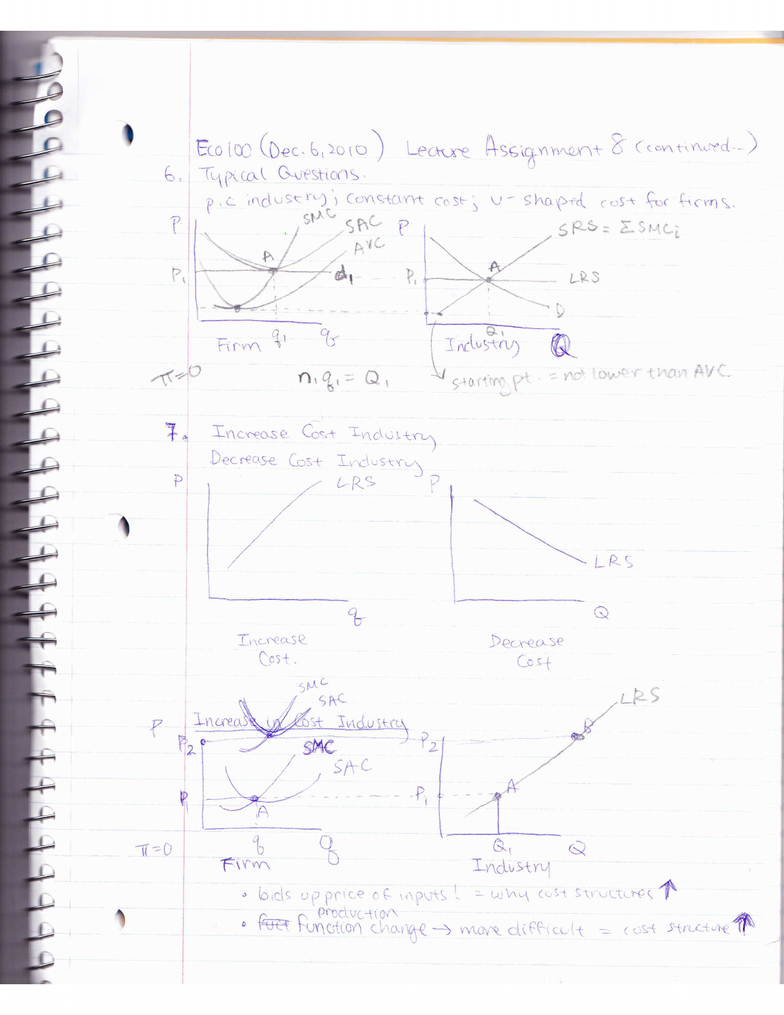 Eco100 (Dec. 6, 2010) Lecture Assignment 8 (continued...)
6. Typical Questions.
p.c industry; constant cost; U-shaped cost for firms.
P SMC SAC AVC
P₁ A d₁
Firm q₁ q
P SRS = ΣSMCi
P₁ A LRS
D
Q₁
Industry Q
π=0 n₁q₁ = Q₁ starting pt. = not lower than AVC
7. Increase Cost Industry
Decrease Cost Industry
P LRS
q
Increase
Cost.
P
LRS
Q
Decrease
Cost
SMC
SAC
P Increase in Cost Industry
P₂
SMC
SAC
P₁ A
q q
π=0 Firm
LRS
P₂ B
P₁ A
Q₁ Q
Industry
• bids up price of inputs! = why cost structures ↑
production
• funct function change → more difficult = cost structure ↑